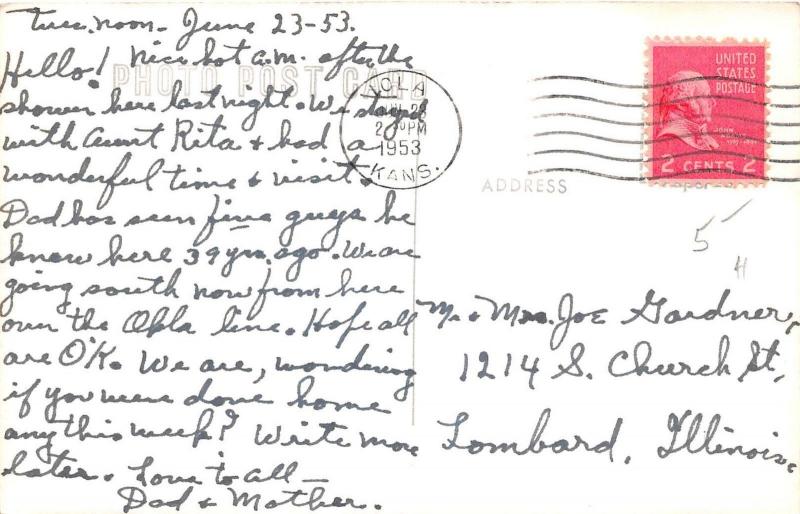 Tues. noon - June 23-53.
Hello! Nice hot a.m. after the
PHOTO POST CARD
shower here last night. We stayed
with Aunt Rita & had a
wonderful time & visit.
Dad has seen five guys he
knew here 39 yrs. ago. We are
going south now from here
over the Okla line. Hope all
are O'K. We are, wondering
if you were down home
any this week? Write more
later. Love to all -
Dad & Mother.
IOLA
JUN 23
PM
1953
KANS.
UNITED
STATES
POSTAGE
JOHN
2 CENTS 2
ADDRESS
5
H
Mr. & Mrs. Joe Gardner,
1214 S. Church St,
Lombard, Illinois.